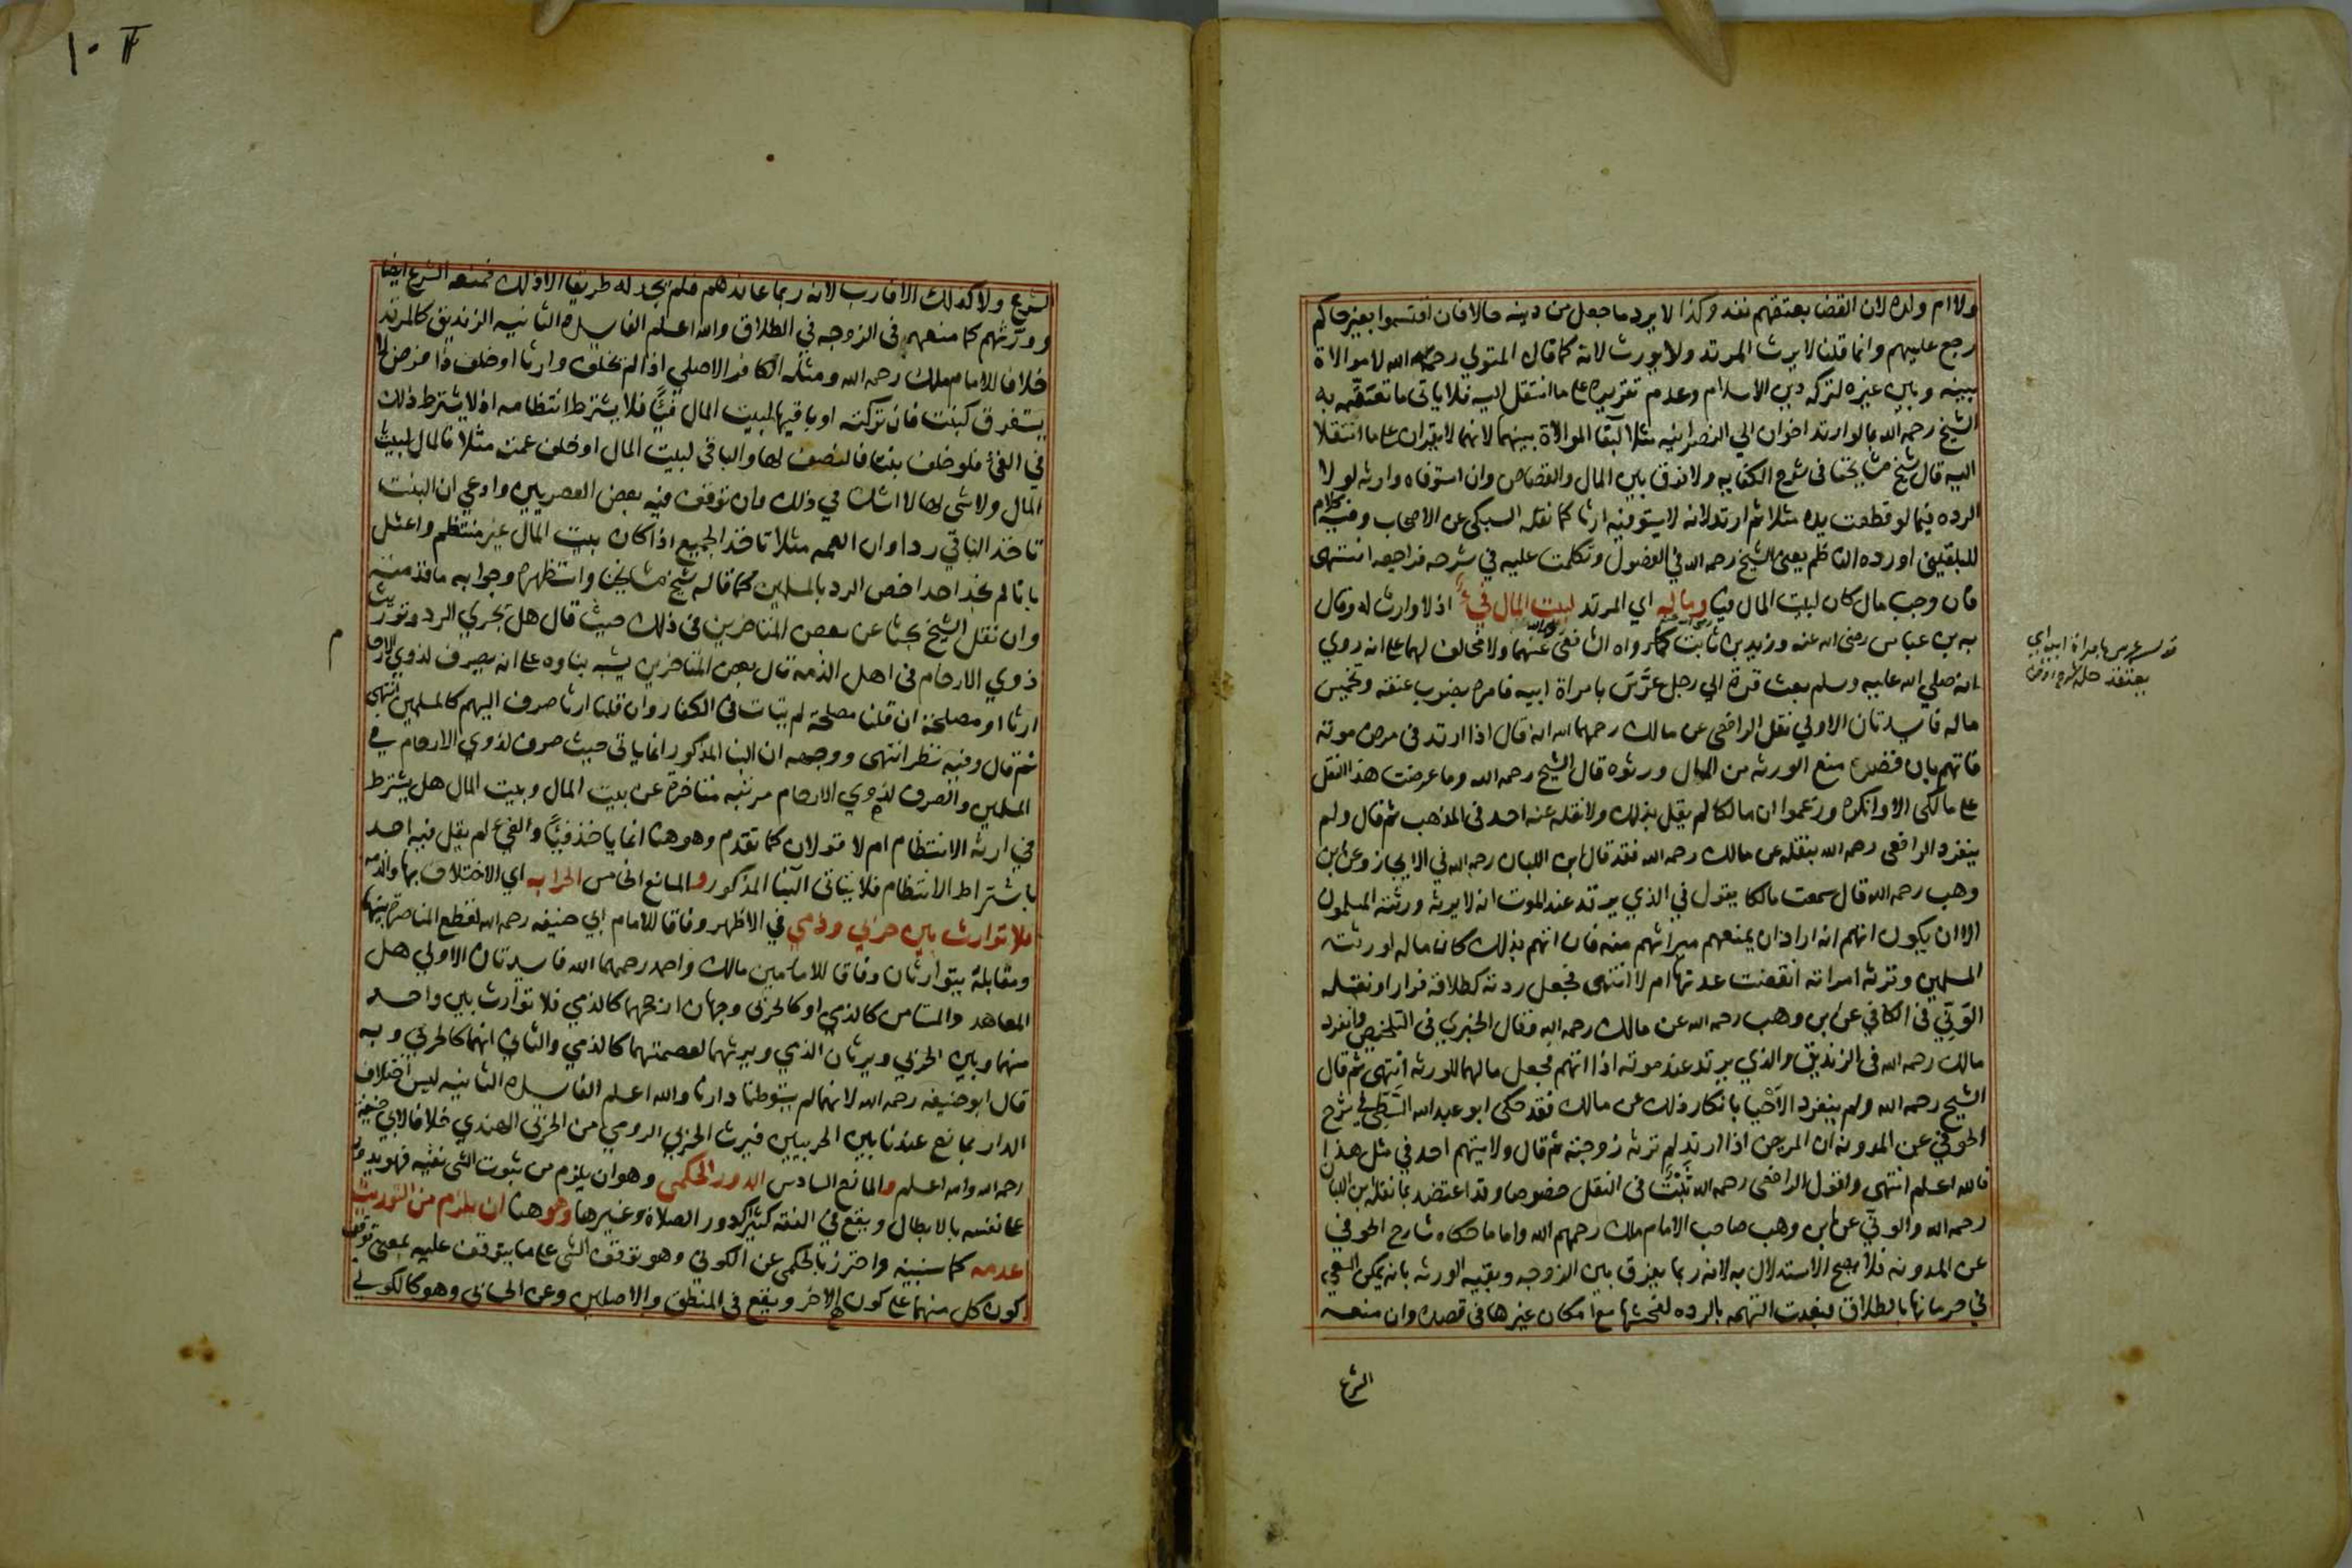 ولا ام ولده لان القضا بعتقهم نفذ وكذا لا يرد ما جعل من دينه حالا فان اقتسموا بغير حاكم
رجع عليهم وانما قلنا لا يرث المرتد ولا يورث لانه كما قال المتولي رحمه الله لا موالاة
بينه وبين غيره لتركه دين الاسلام وعدم تقريره على ما انتقل اليه فلا ياتي ما تعقبه به
الشيخ رحمه الله مالو ارتد اخوان الي النصرانيه مثلا لبقا الموالاة بينهما لانهما لا يقران على ما انتقلا
اليه قال شيخ مشايخنا في شرح الكفايه ولا فرق بين المال والقصاص وان استوفاه وارثه لولا
الرده فيما لو قطعت يده مثلا ثم ارتد لانه لا يستوفيه ارثا كما نقله السبكي عن الاصحاب وفيه كلام
للبلقيني اورده الناظم يعني الشيخ رحمه الله في الفضول وتكلمت عليه في شرحه فراجعه انتهى
فان وجب مال كان لبيت المال فيئا وماله اي المرتد لبيت المال فيء اذ لا وارث له وقال
به بن عباس رضي الله عنه وزيد بن ثابت كما رواه الشافعي عنهما ولا مخالف لهما على انه روي
انه صلي الله عليه وسلم بعث قرة الي رجل عرس بامراة ابيه فامره بضرب عنقه وتخميس
ماله فايدتان الاولي نقل الرافعي عن مالك رحمهما الله انه قال اذا ارتد في مرض موته
فاتهم بان قصده منع الورثه من المال ورثوه قال الشيخ رحمه الله وما عرضت هذا النقل
على مالكي الا وانكره وزعموا ان مالكا لم يقل بذلك ولا نقله عنه احد في المذهب ثم قال ولم
ينفرد الرافعي رحمه الله بنقله عن مالك رحمه الله فقد قال ابن اللبان رحمه الله في الايجاز وعن ابن
وهب رحمه الله قال سمعت مالكا يقول في الذي يرتد عند الموت انه لا يرثه ورثته المسلمون
الا ان يكون اتهم انه اراد ان يمنعهم ميراثهم منه فان اتهم بذلك كان ماله لورثته
المسلمين وترثه امراته انقضت عدتها ام لا انتهى فجعل ردته كطلاقه فرارا ونقله
الوني في الكافي عن ابن وهب رحمه الله عن مالك رحمه الله وقال الخبري في التلخيص وانفرد
مالك رحمه الله في الزنديق والذي يرتد عند موته اذا اتهم فجعل مالهما للورثه انتهى ثم قال
الشيخ رحمه الله ولم ينفرد الاخيا بانكار ذلك عن مالك فقد حكى ابو عبد الله السطي في شرح
الحوفي عن المدونه ان المريض اذا ارتد لم ترثه زوجته ثم قال ولا يتهم احد في مثل هذا
فالله اعلم انتهى واقول الرافعي رحمه الله ثبت في النقل خصوصا وقد اعتضد بما نقله ابن اللبان
رحمه الله والوني عن ابن وهب صاحب الامام ملك رحمهم الله واما ما حكاه شارح الحوفي
عن المدونه فلا يصح الاستدلال به لانه ربما يفرق بين الزوجه وبقيه الورثه بانه يمكن السعي
في حرمانها بالطلاق فبعدت التهمه بالرده لفحشها مع امكان غيرها في قصده وان منعه
الشرع
قوله عرس بامراة ابيه اي
يعتقد حله
١٠
الشرع ولا كذلك الاقارب لانه ربما عاندهم فلم يجد له طريقا الا ذلك فمنعه الشرع ايضا
وورثهم كما منعهم في الزوجه في الطلاق والله اعلم الفايده الثانيه الزنديق كالمرتد
خلافا للامام ملك رحمه الله ومثله الكافر الاصلي اذا لم يخلف وارثا او خلف ذا فرض لا
يستغرق كبنت فان تركته او باقيها لبيت المال فيئا فلا يشترط انتظامه اذ لا يشترط ذلك
في الفيء فلو خلف بنتا فالنصف لها والباقي لبيت المال او خلف عمة مثلا فالمال لبيت
المال ولا شي لها لا شك في ذلك وان توقف فيه بعض العصريين وادعي ان البنت
تاخذ الباقي ردا وان العمه مثلا تاخذ الجميع اذا كان بيت المال غير منتظم واعتل
بانا لم نجد احدا خص الرد بالمسلمين كما قاله شيخ مشايخنا واستظهره وجوابه ماخذ منه
وان نقل الشيخ بحثا عن بعض المتاخرين في ذلك حيث قال هل يجري الرد وتوريث
ذوي الارحام في اهل الذمه قال بعض المتاخرين يشبه بناوه على انه يصرف لذوي الارحام
م
ارثا او مصلحة ان قلنا مصلحة لم يتات في الكفار وان قلنا ارثا صرف اليهم كالمسلمين انتهى
ثم قال وفيه نظر انتهى ووجهه ان البنا المذكور انما ياتي حيث صرف لذوي الارحام في
المسلمين والصرف لذوي الارحام مرتبه متاخرة عن بيت المال وبيت المال هل يشترط
في ارثه الانتظام ام لا قولان كما تقدم وهو هنا انما ياخذ فيئا والفيء لم يقل فيه احد
باشتراط الانتظام فلا يتاتى البنا المذكور والمانع الخامس الحرابه اي الاختلاف بها والذمه
فلا توارث بين حربي وذمي في الاظهر وفاقا للامام ابي حنيفه رحمه الله لقطع المناصرة بينهما
ومقابله يتوارثان وفاقا للامامين مالك واحمد رحمهما الله فايدتان الاولي هل
المعاهد والمستامن كالذمي او كالحربي وجهان ارجحهما كالذمي فلا توارث بين واحد
منهما وبين الحربي ويرثان الذمي ويرثهما لعصمتهما كالذمي والثاني انهما كالحربي وبه
قال ابو حنيفه رحمه الله لانهما لم يتوطنا دارنا والله اعلم الفايده الثانيه ليس اختلاف
الدار بمانع عندنا بين الحربيين فيرث الحربي الرومي من الحربي الهندي خلافا لابي حنيفة
رحمه الله والله اعلم والمانع السادس الدور الحكمي وهو ان يلزم من ثبوت الشي نفيه فهو يعود
على نفسه بالابطال ويقع في الفقه كثيرا كدور الصلاة وغيرها وهو هنا ان يلزم من التوريث
عدمه كما سنبينه واحترز بالحكمي عن الكوني وهو توقف الشي على ما يتوقف عليه بمعنى توقف
كون كل منهما على كون الاخر ويقع في المنطق والاصلين وعن الحسابي وهو كالكوني